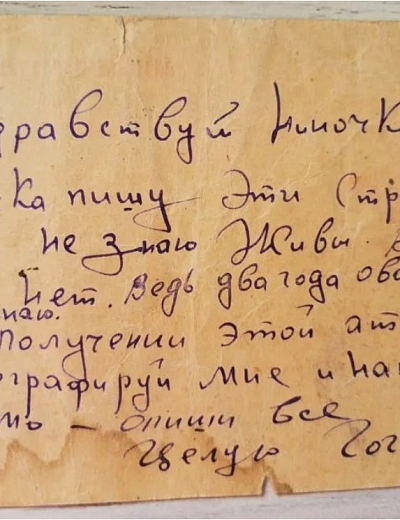 дравствуй Ниночк
ка пишу эти стр
не знаю Живы.
нет. Ведь два года ова
наю.
Получении этой ат
ографируй мне и на
мо – опиши все
Целую Гог